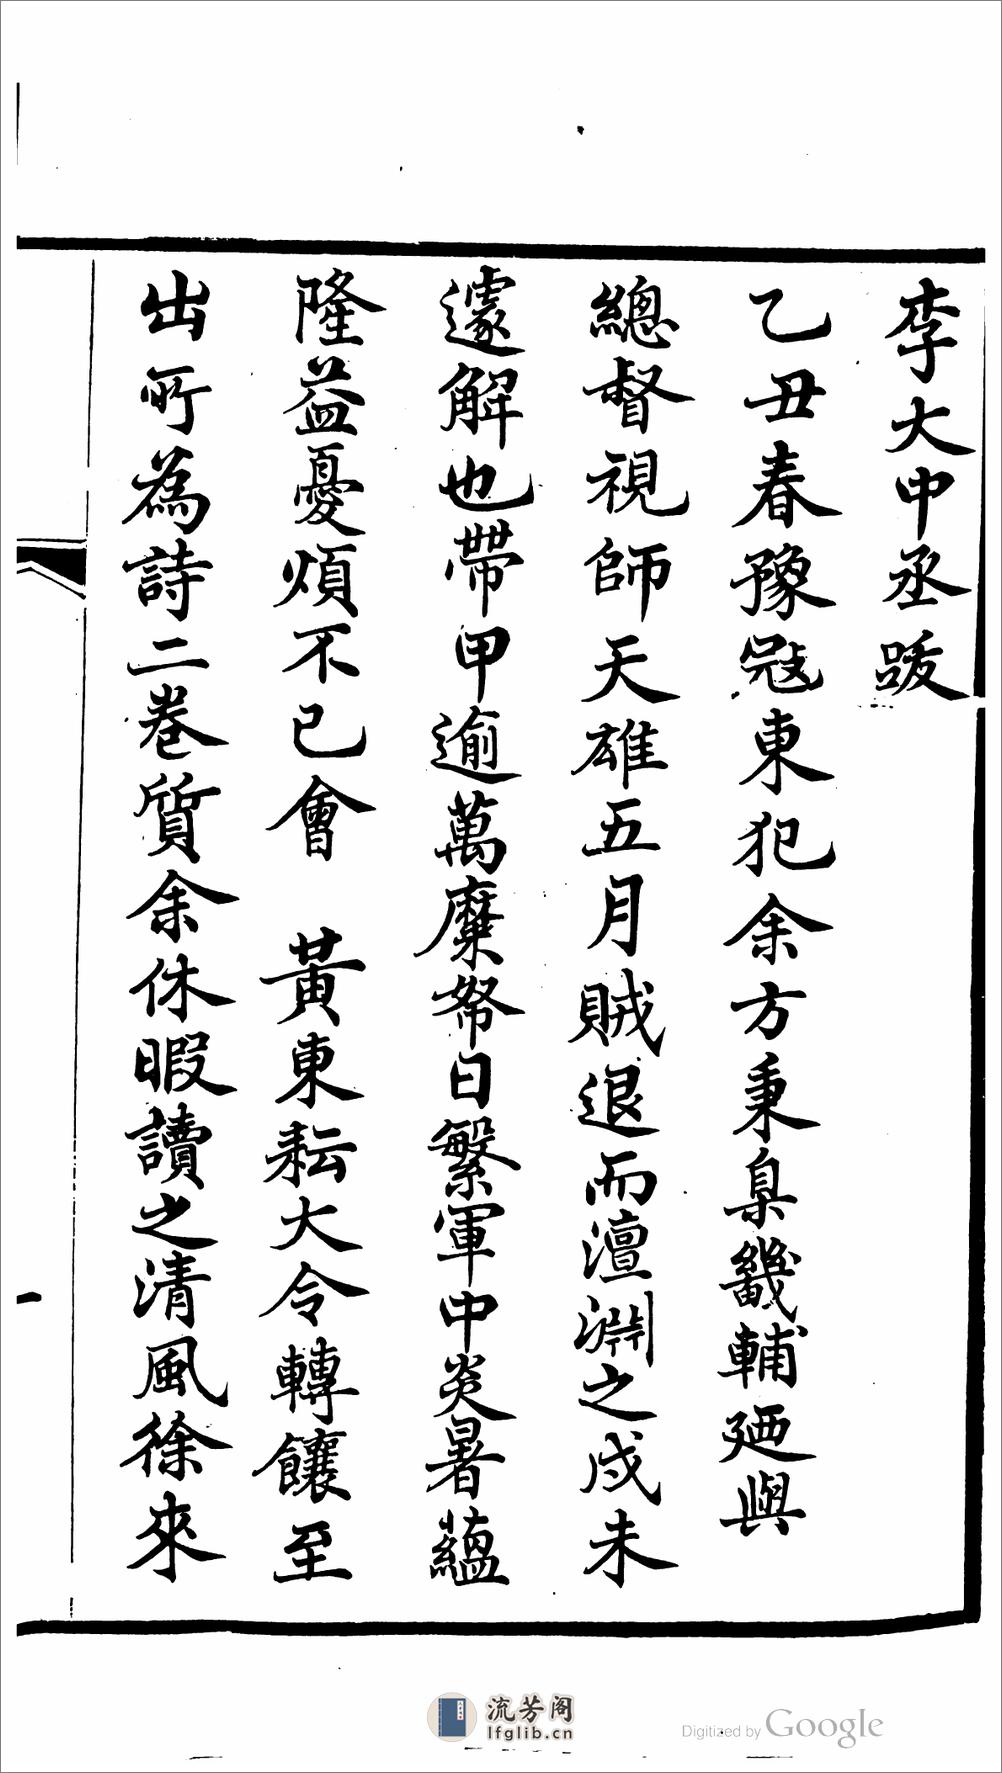 李大中丞跋
乙丑春豫冦東犯余方秉臬畿輔廼與
總督視師天雄五月賊退而澶淵之戍未
遽解也帶甲逾萬糜帑日繁軍中炎暑蘊
隆益憂煩不已會 黃東耘大令轉饟至
出所為詩二卷質余休暇讀之清風徐來
流芳阁
lfglib.cn
Digitized by Google